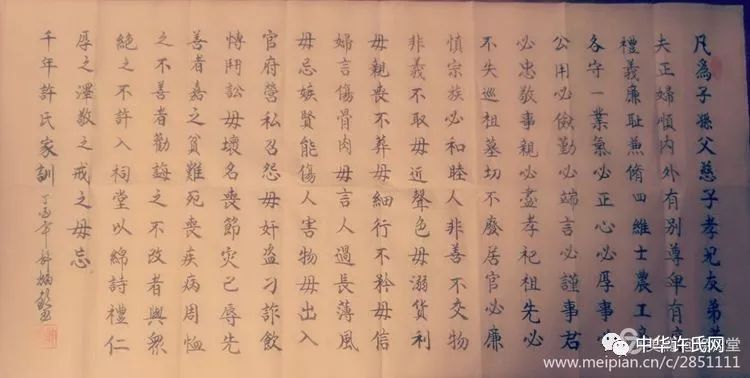 凡為子孫父慈子孝兄友弟
夫正婦順內外有別尊卑有
禮義廉耻兼脩四維士農工
各守一業氣必正心必厚事
公用必儉勤必端言必謹事君
必忠敬事親必盡孝祀祖先必
不失巡祖墓切不廢居官必廉
慎宗族必和睦人非善不交物
非義不取毋近聲色毋溺貨利
毋親喪不葬毋細行不矜毋信
婦言傷骨肉毋言人過長薄風
毋忌嫉賢能傷人害物毋出入
官府營私召怨毋奸盗刁詐飲
慱鬥訟毋壞名喪節灾己辱先
善者嘉之貧難死喪疾病周恤
之不善者勸誨之不改者與衆
絕之不許入祠堂以綿詩禮仁
厚之澤敬之戒之毋忘
千年許氏家訓
丁酉年許炳
中华许氏网
www.meipian.cn/c/2851111